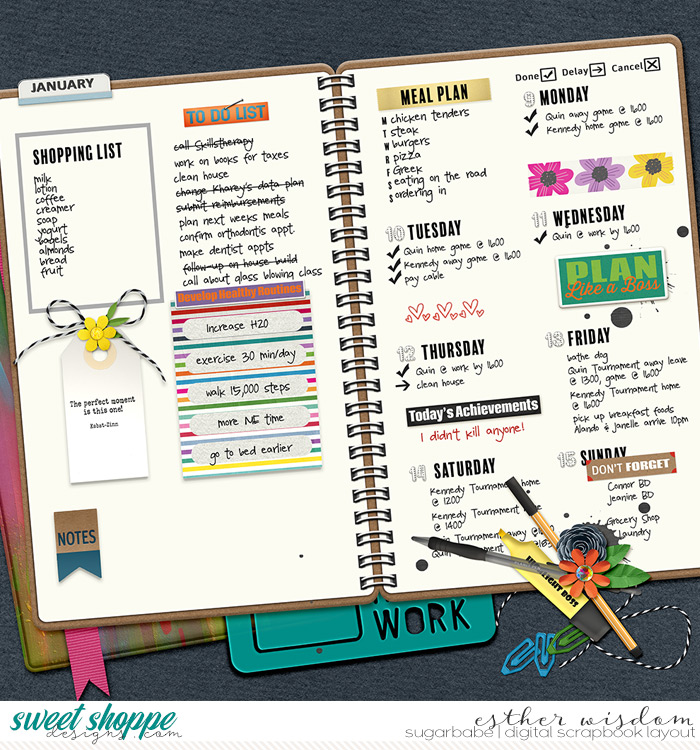 JANUARY
SHOPPING LIST
milk
lotion
coffee
creamer
soap
yogurt
bagels
almonds
bread
fruit
The perfect moment
is this one!
Kabat-Zinn
NOTES
TO DO LIST
call Skillstherapy
work on books for taxes
clean house
change Kharey's data plan
submit reimbursements
plan next weeks meals
confirm orthodontis appt.
make dentist appts
follow-up on house build
call about glass blowing class
Develop Healthy Routines
Increase H2O
exercise 30 min/day
walk 15,000 steps
more ME time
go to bed earlier
MEAL PLAN
M chicken tenders
T steak
W burgers
R pizza
F Greek
S eating on the road
S ordering in
10 TUESDAY
Quin home game @ 1600
Kennedy away game @ 1600
pay cable
12 THURSDAY
Quin @ work by 1600
clean house
Today's Achievements
I didn't kill anyone!
14 SATURDAY
Kennedy Tournament home
@ 1200
Kennedy Tournament
@ 1400
Quin Tournament away @
Quin
Done Delay Cancel
9 MONDAY
Quin away game @ 1600
Kennedy home game @ 1600
11 WEDNESDAY
Quin @ work by 1600
PLAN
Like a Boss
13 FRIDAY
bathe dog
Quin Tournament away leave
@ 1300, game @ 1600
Kennedy Tournament home
@ 1600
pick up breakfast foods
Alando & Janelle arrive 10pm
15 SUNDAY
DON'T FORGET
Connor BD
Jeanine BD
Grocery Shop
laundry
HIGHLIGHT BOSS
WORK
sweet shoppe
designs.com
esther wisdom
sugarbabe | digital scrapbook layout